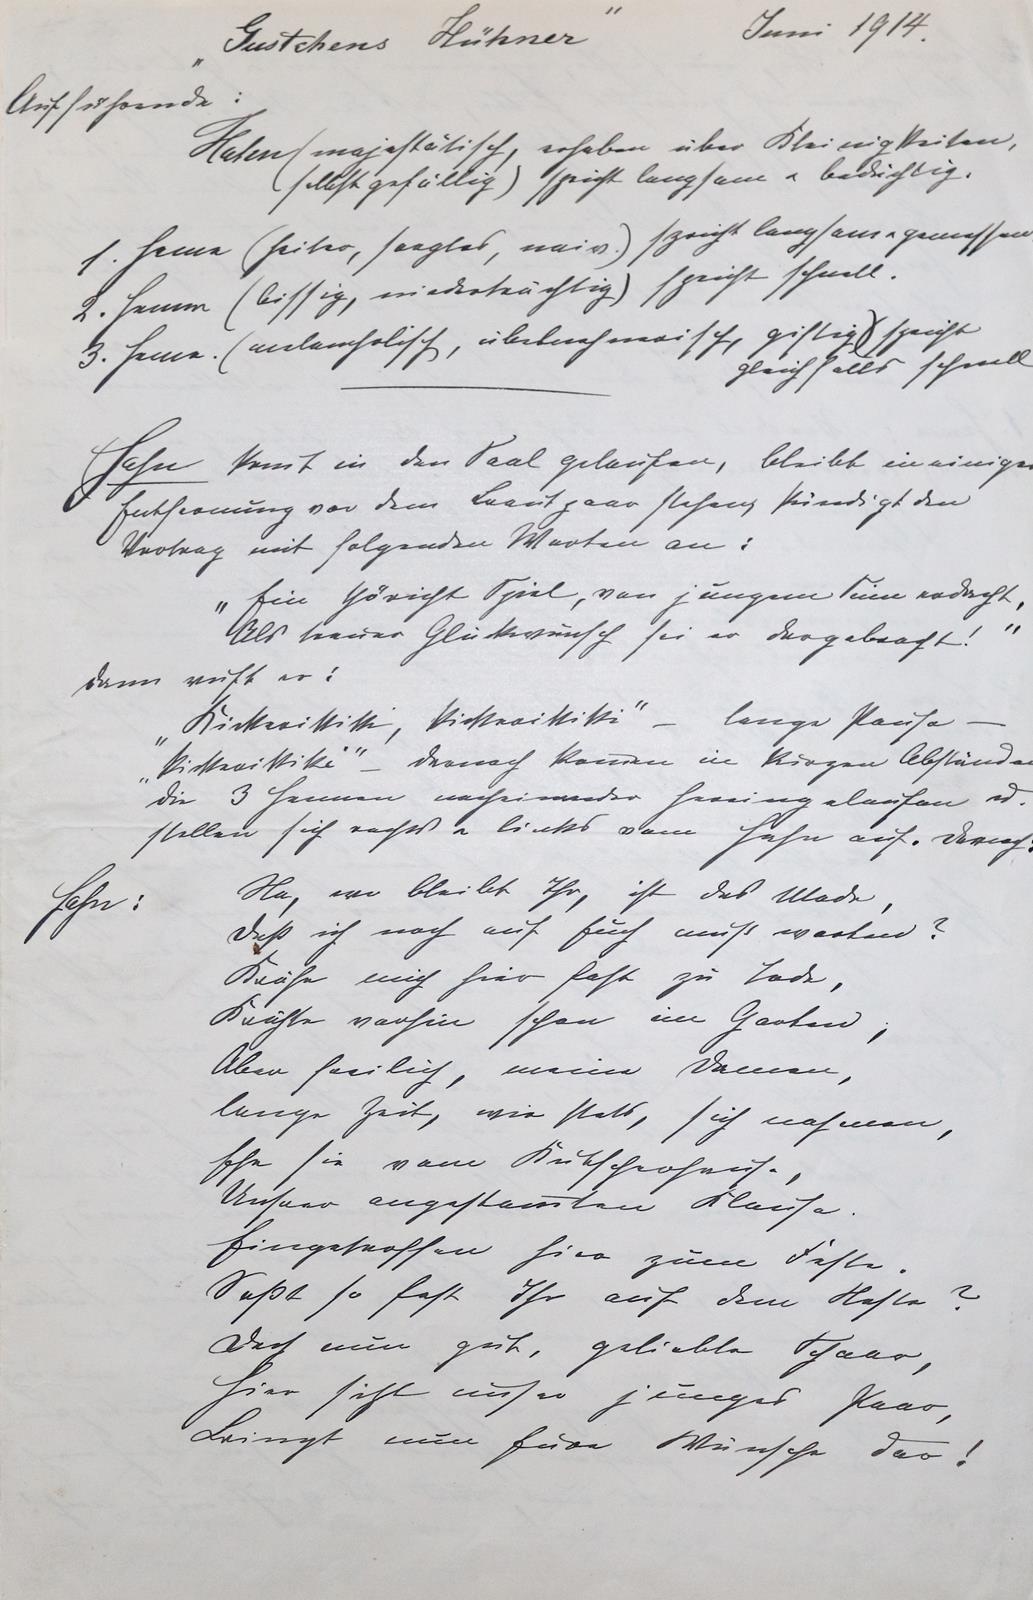 „Gustchens Hühner" Juni 1914.
Aufführende:
Hahn (majestätisch, erhaben über Kleinigkeiten,
selbstgefällig) spricht langsam u bedächtig.
1. Henne (heiter, harmlos, naiv.) spricht langsam u gemessen
2. Henne (bissig, niederträchtig) spricht schnell.
3. Henne. (melancholisch, übelnehmerisch, giftig) spricht
gleichfalls schnell
Hahn komt in den Saal gelaufen, bleibt in einiger
Entfernung vor dem Brautpaar stehen, kündigt den
Vortrag mit folgenden Worten an:
„Ein thöricht Spiel, von jungem Sinn erdacht,
Als treuer Glückwunsch sei er dargebracht!"
dann ruft er:
„Kickerikiki, kickerikiki" – lange Pause –
„kickerikiki" – darnach komen in kurzen Abständen
die 3 Hennen nacheinander hereingelaufen u.
stellen sich rechts u links vom Hahn auf. Darnach:
Hahn: Na, wo bleibt Ihr, ist das Mode,
Daß ich noch auf Euch muß warten?
Krähe mich hier fast zu Tode,
Krähte vorhin schon im Garten;
Aber freilich, meine Damen,
lange Zeit, wie stets, sich nahmen,
Ehe sie vom Kutscherhause,
Unsrer angestamten Klause.
Eingetroffen hier zum Feste.
Saßt so fest Ihr auf dem Neste?
Doch nun gut, geliebte Schaar,
Hier sitzt unser junges Paar,
Bringt nun Eure Wünsche dar!